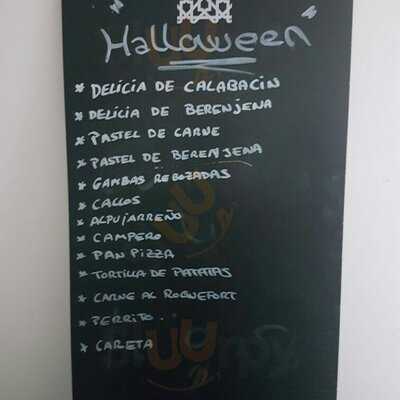 Halloween
* DELICIA DE CALABACIN
* DELICIA DE BERENJENA
* PASTEL DE CARNE
* PASTEL DE BERENJENA
* GAMBAS REBOZADAS
* CALLOS
* ALPUJARREÑO
* CAMPERO
* PAN PIZZA
* TORTILLA DE PATATAS
* CARNE AL ROQUEFORT
* PERRITO.
* CARETA